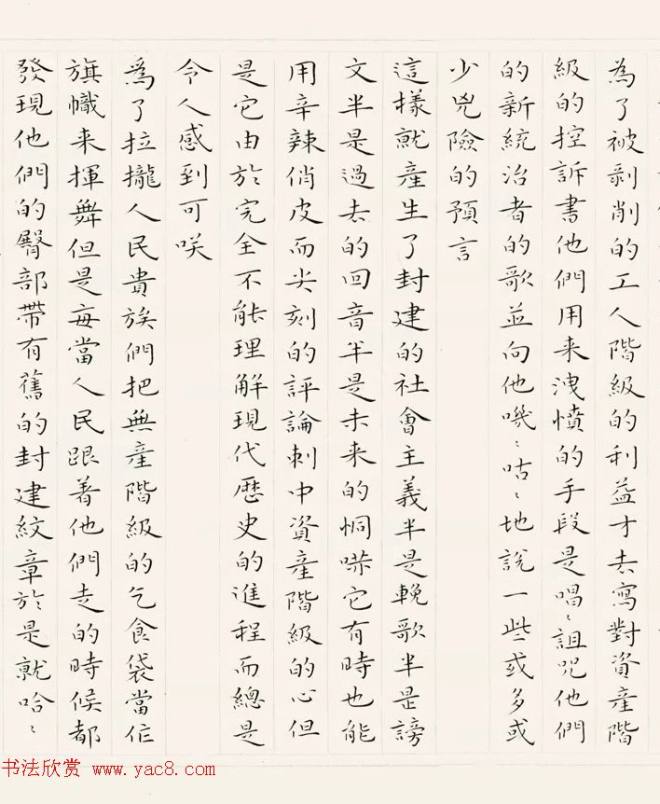 為了被剥削的工人階級的利益才去寫對資産階
級的控訴書他們用来洩憤的手段是唱〻詛咒他們
的新統治者的歌並向他嘰〻咕〻地說一些或多或
少兇險的預言
這樣就産生了封建的社會主義半是輓歌半是謗
文半是過去的回音半是未来的恫嚇它有時也能
用辛辣俏皮而尖刻的評論刺中資産階級的心但
是它由於完全不能理解現代歷史的進程而總是
令人感到可咲
為了拉攏人民貴族們把無産階級的乞食袋當作
旗幟来揮舞但是每當人民跟着他們走的時候都
發現他們的臀部帶有舊的封建紋章於是就哈〻
书法欣赏 www.yac8.com